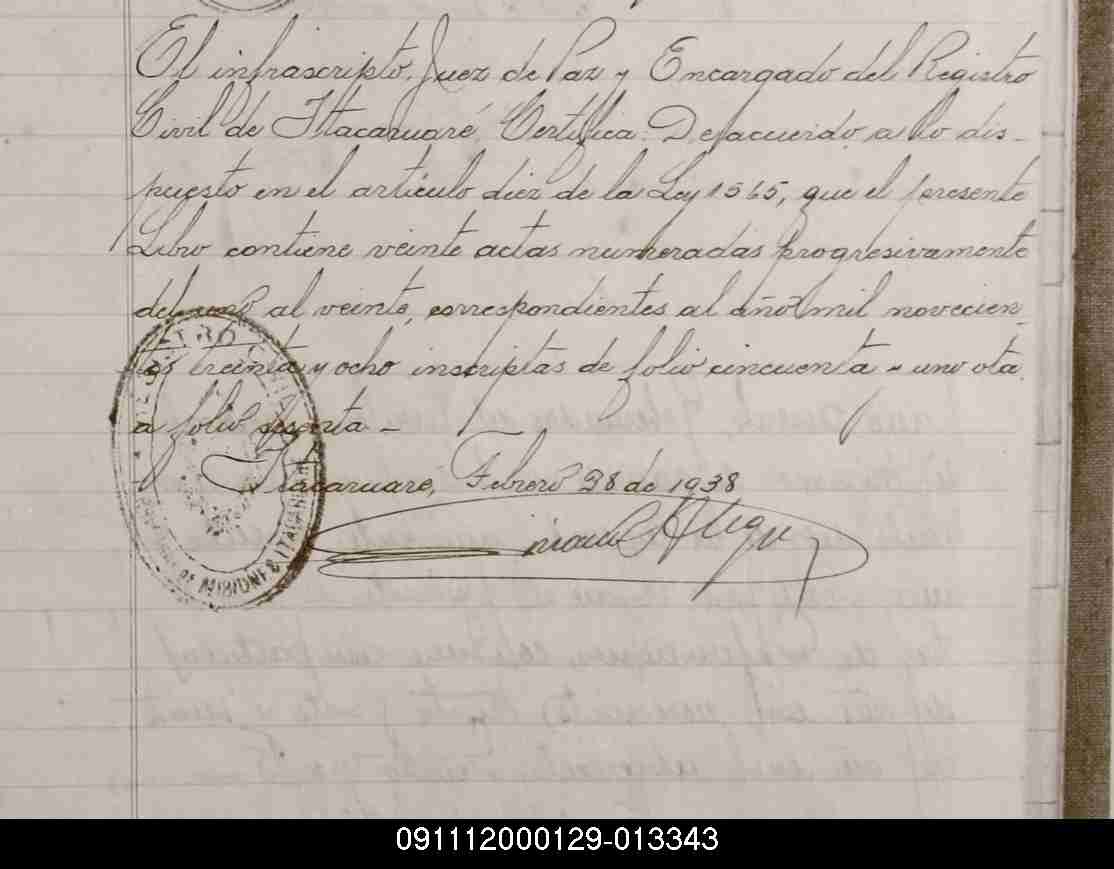 El infrascripto, Juez de Paz y Encargado del Registro
Civil de Itacaruaré, Certifica: De acuerdo, a lo dis-
puesto en el artículo diez de la Ley 1565, que el presente
Libro contiene veinte actas numeradas progresivamente
del uno al veinte, correspondientes al año mil novecien-
tos treinta y ocho inscriptas de folio cincuenta y uno vta
a folio sesenta -
Itacaruaré, Febrero 28 de 1938
MISIONES ITACARUARE
091112000129-013343